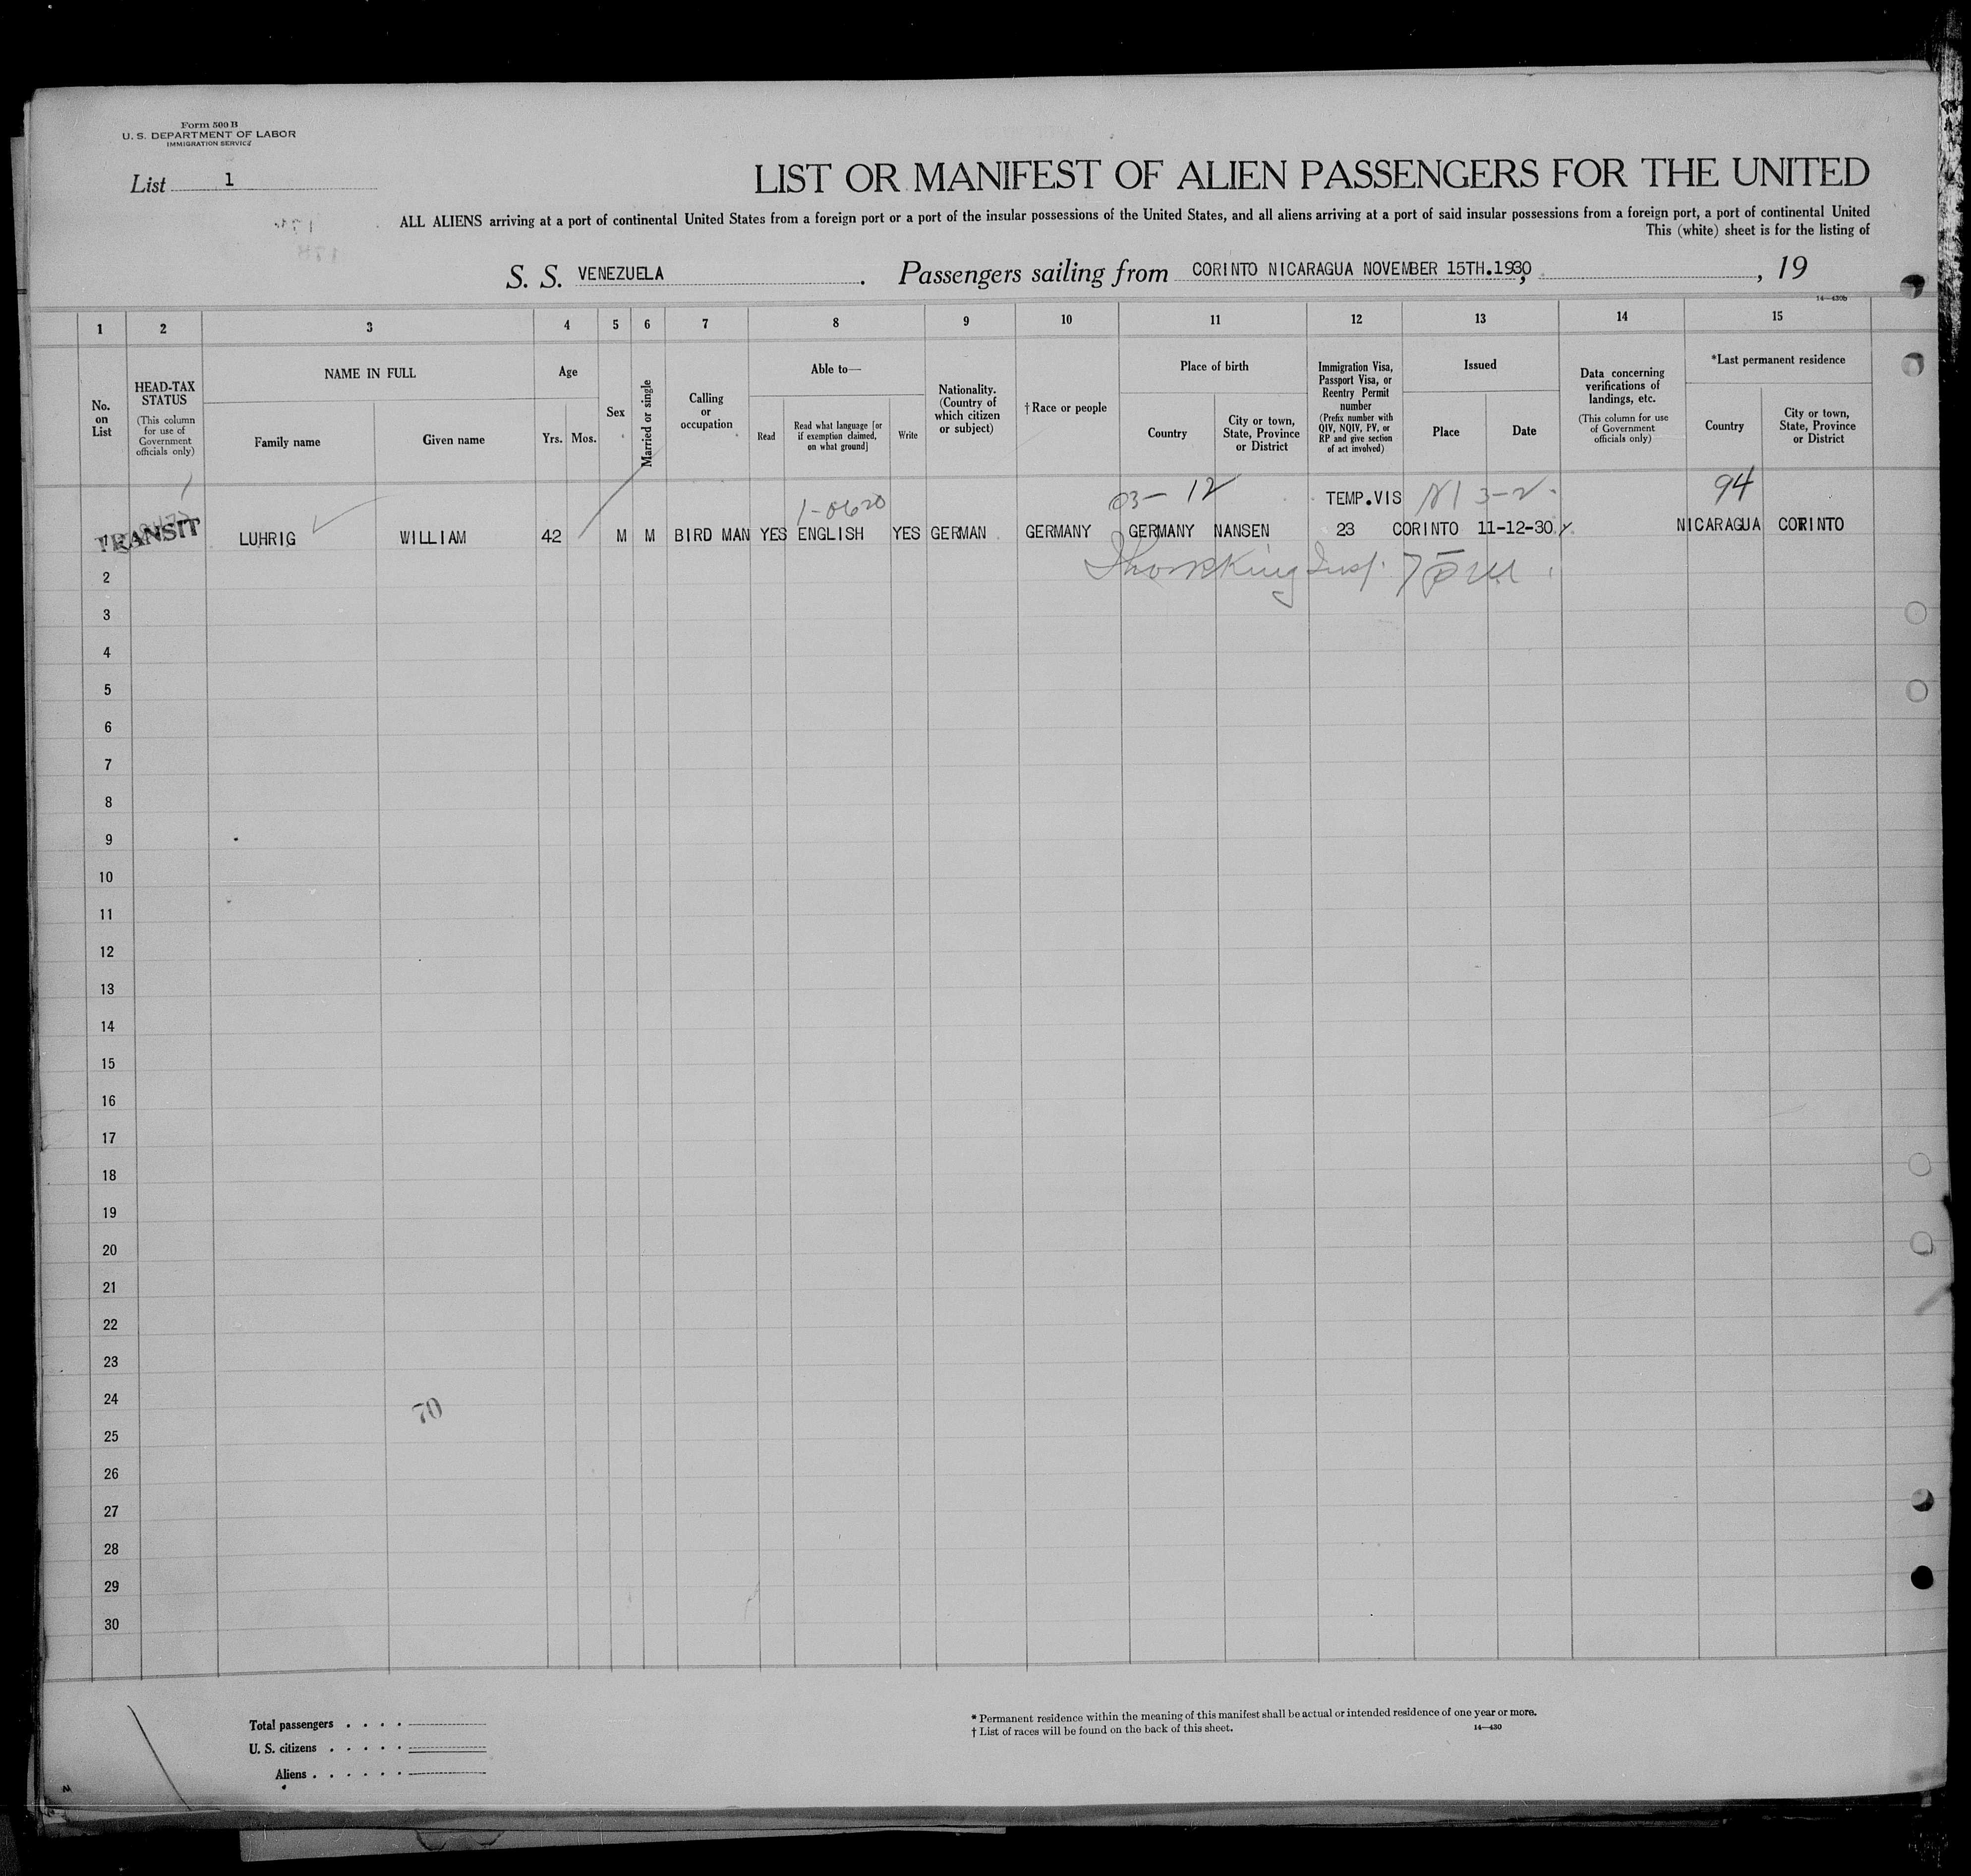 Form 500 B
U. S. DEPARTMENT OF LABOR
IMMIGRATION SERVICE
List 1
LIST OR MANIFEST OF ALIEN PASSENGERS FOR THE UNITED
ALL ALIENS arriving at a port of continental United States from a foreign port or a port of the insular possessions of the United States, and all aliens arriving at a port of said insular possessions from a foreign port, a port of continental United
This (white) sheet is for the listing of
S. S. VENEZUELA. Passengers sailing from CORINTO NICARAGUA NOVEMBER 15TH.1930, , 19
14—430b
1 2 3 4 5 6 7 8 9 10 11 12 13 14 15
No. on List
HEAD-TAX STATUS (This column for use of Government officials only)
NAME IN FULL
Family name
Given name
Age
Yrs. Mos.
Sex
Married or single
Calling or occupation
Able to—
Read
Read what language [or if exemption claimed, on what ground]
Write
Nationality. (Country of which citizen or subject)
† Race or people
Place of birth
Country
City or town, State, Province or District
Immigration Visa, Passport Visa, or Reentry Permit number (Prefix number with QIV, NQIV, PV, or RP and give section of act involved)
Issued
Place
Date
Data concerning verifications of landings, etc. (This column for use of Government officials only)
*Last permanent residence
Country
City or town, State, Province or District
1-0620 03- 12 TEMP.VIS 3-2. 94
TRANSIT LUHRIG WILLIAM 42 M M BIRD MAN YES ENGLISH YES GERMAN GERMANY GERMANY NANSEN 23 CORINTO 11-12-30. NICARAGUA CORINTO
2
3
4
5
6
7
8
9
10
11
12
13
14
15
16
17
18
19
20
21
22
23
24
70
25
26
27
28
29
30
Total passengers . . . .
U. S. citizens . . . . .
Aliens . . . . . .
* Permanent residence within the meaning of this manifest shall be actual or intended residence of one year or more.
† List of races will be found on the back of this sheet.
14—430